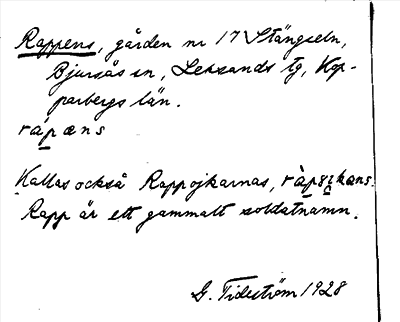 Rappens, gården nr 17 Stängseln,
Bjursås sn, Leksands tg, Kop-
parbergs län.
ràpæns
Kallas också Rappojkarnas,
Rapp är ett gammalt soldatnamn.
G. Tideström 1928